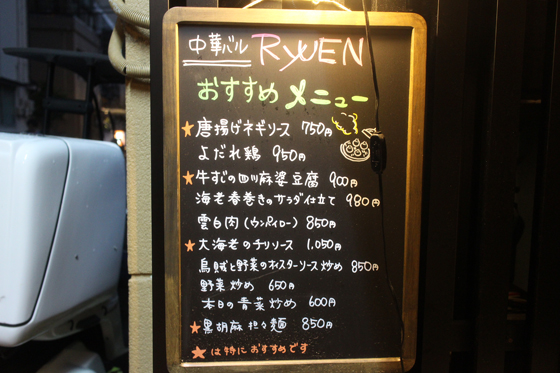 中華バル RYUEN
おすすめメニュー
★唐揚げネギソース 750円
よだれ鶏 950円
★牛すじの四川麻婆豆腐 900円
海老春巻きのサラダ仕立て 980円
雲白肉(ウンパイロー) 850円
★大海老のチリソース 1,050円
烏賊と野菜のオイスターソース炒め 850円
野菜炒め 650円
本日の青菜炒め 600円
★黒胡麻担々麺 850円
★は特におすすめです